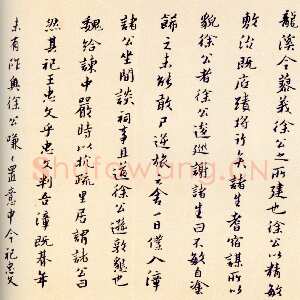 龍溪令蔡義徐公之所建也徐公以精敏
敷治既店蹟將訖矣諸生耆宿謀所以
貌徐公者徐公逡巡謝諸生曰不敏自塗
飾之未能敢尸逆旅之舍一日僕入漳
諸公坐間談祠事且道徐公遜敦懇也
魏給諫中嚴時以抗疏里居謂諸公曰
然其祀王忠文乎忠文判吾漳既暮年
未有所與徐公嗛嗛置意中今祀忠文
Shufawang.CN